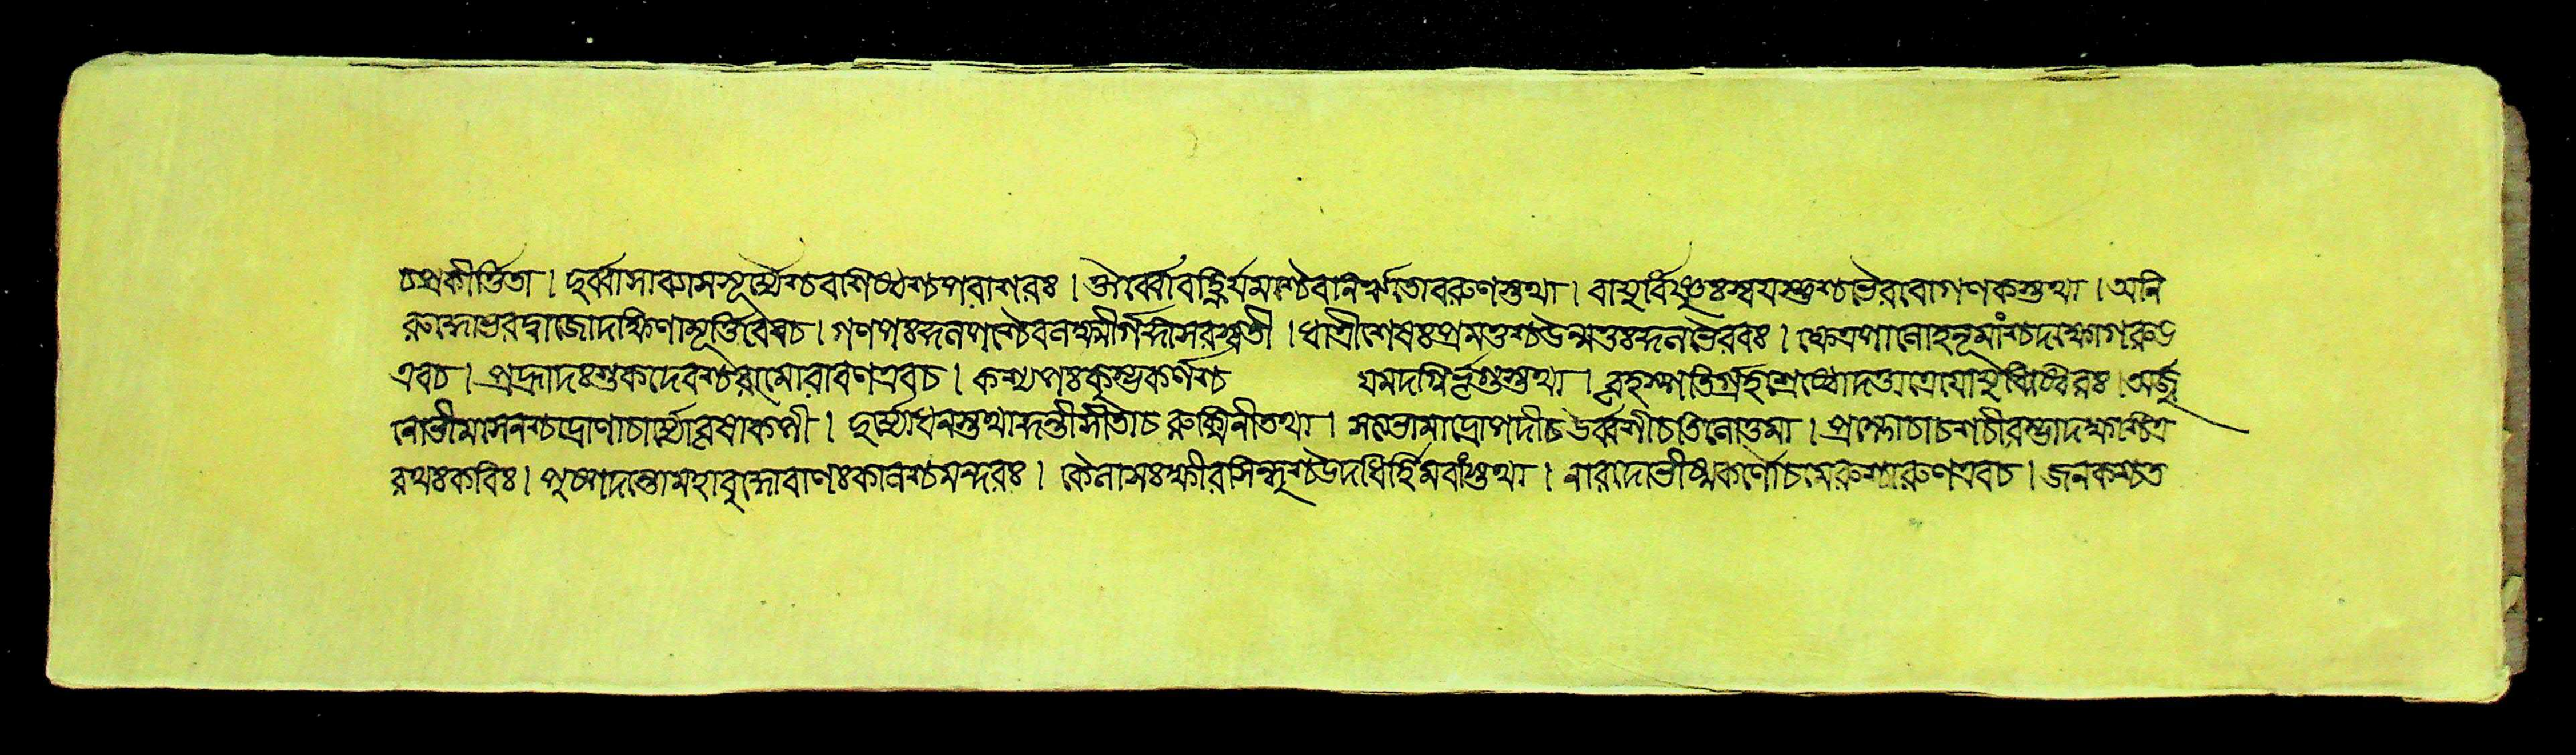 চপ্রকীর্ত্তিতা । দুর্ব্বাসাব্যাসসূর্য্যশ্চবাশিষ্ঠশ্চপরাশরঃ । ঔর্ব্বোবহ্নির্যমশ্চৈবানিরৃতোবরুণস্তথা । বায়ুর্বিষ্ণুঃস্বয়ম্ভুশ্চভৈরবোগণকস্তথা । অনি
রুদ্ধোভরদ্বাজোদক্ষিণামূর্ত্তিরেবচ । গণপঃকুলপশ্চৈবলক্ষ্মীর্গঙ্গাসরস্বতী । ধাত্রীশেষঃপ্রমত্তশ্চউন্মত্তঃকুলভৈরবঃ । ক্ষেত্রপালোহনূমাংশ্চদক্ষোগরুড়
এবচ । প্রহ্লাদঃশুকদেবশ্চরামোরাবণএবচ । কশ্যপঃকুম্ভকর্ণশ্চ যমদগ্নির্ভৃগুস্তথা । বৃহস্পতির্গ্রহশ্রেষ্ঠোদত্তাত্রেয়োযুধিষ্ঠিরঃ । অর্জ্জু
নোভীমসেনশ্চদ্রোণাচার্য্যোবৃষাকপী । দুর্য্যোধনস্তথাকুন্তীসীতাচ রুক্মিনীতথা । সত্যভামাদ্রৌপদীচউর্ব্বশীচতিলোত্তমা । প্রম্লোচাচশচীরম্ভাদক্ষশ্চিত্র
রথঃকবিঃ । পুষ্পদন্তোমহাবুদ্ধোবাণঃকালশ্চমন্দরঃ । কৈলাসঃক্ষীরসিন্ধুশ্চউদধির্হিমবাংস্তথা । নারদোভীষ্মকর্ণৌচমেরুশ্চারুণএবচ । জনকশ্চত